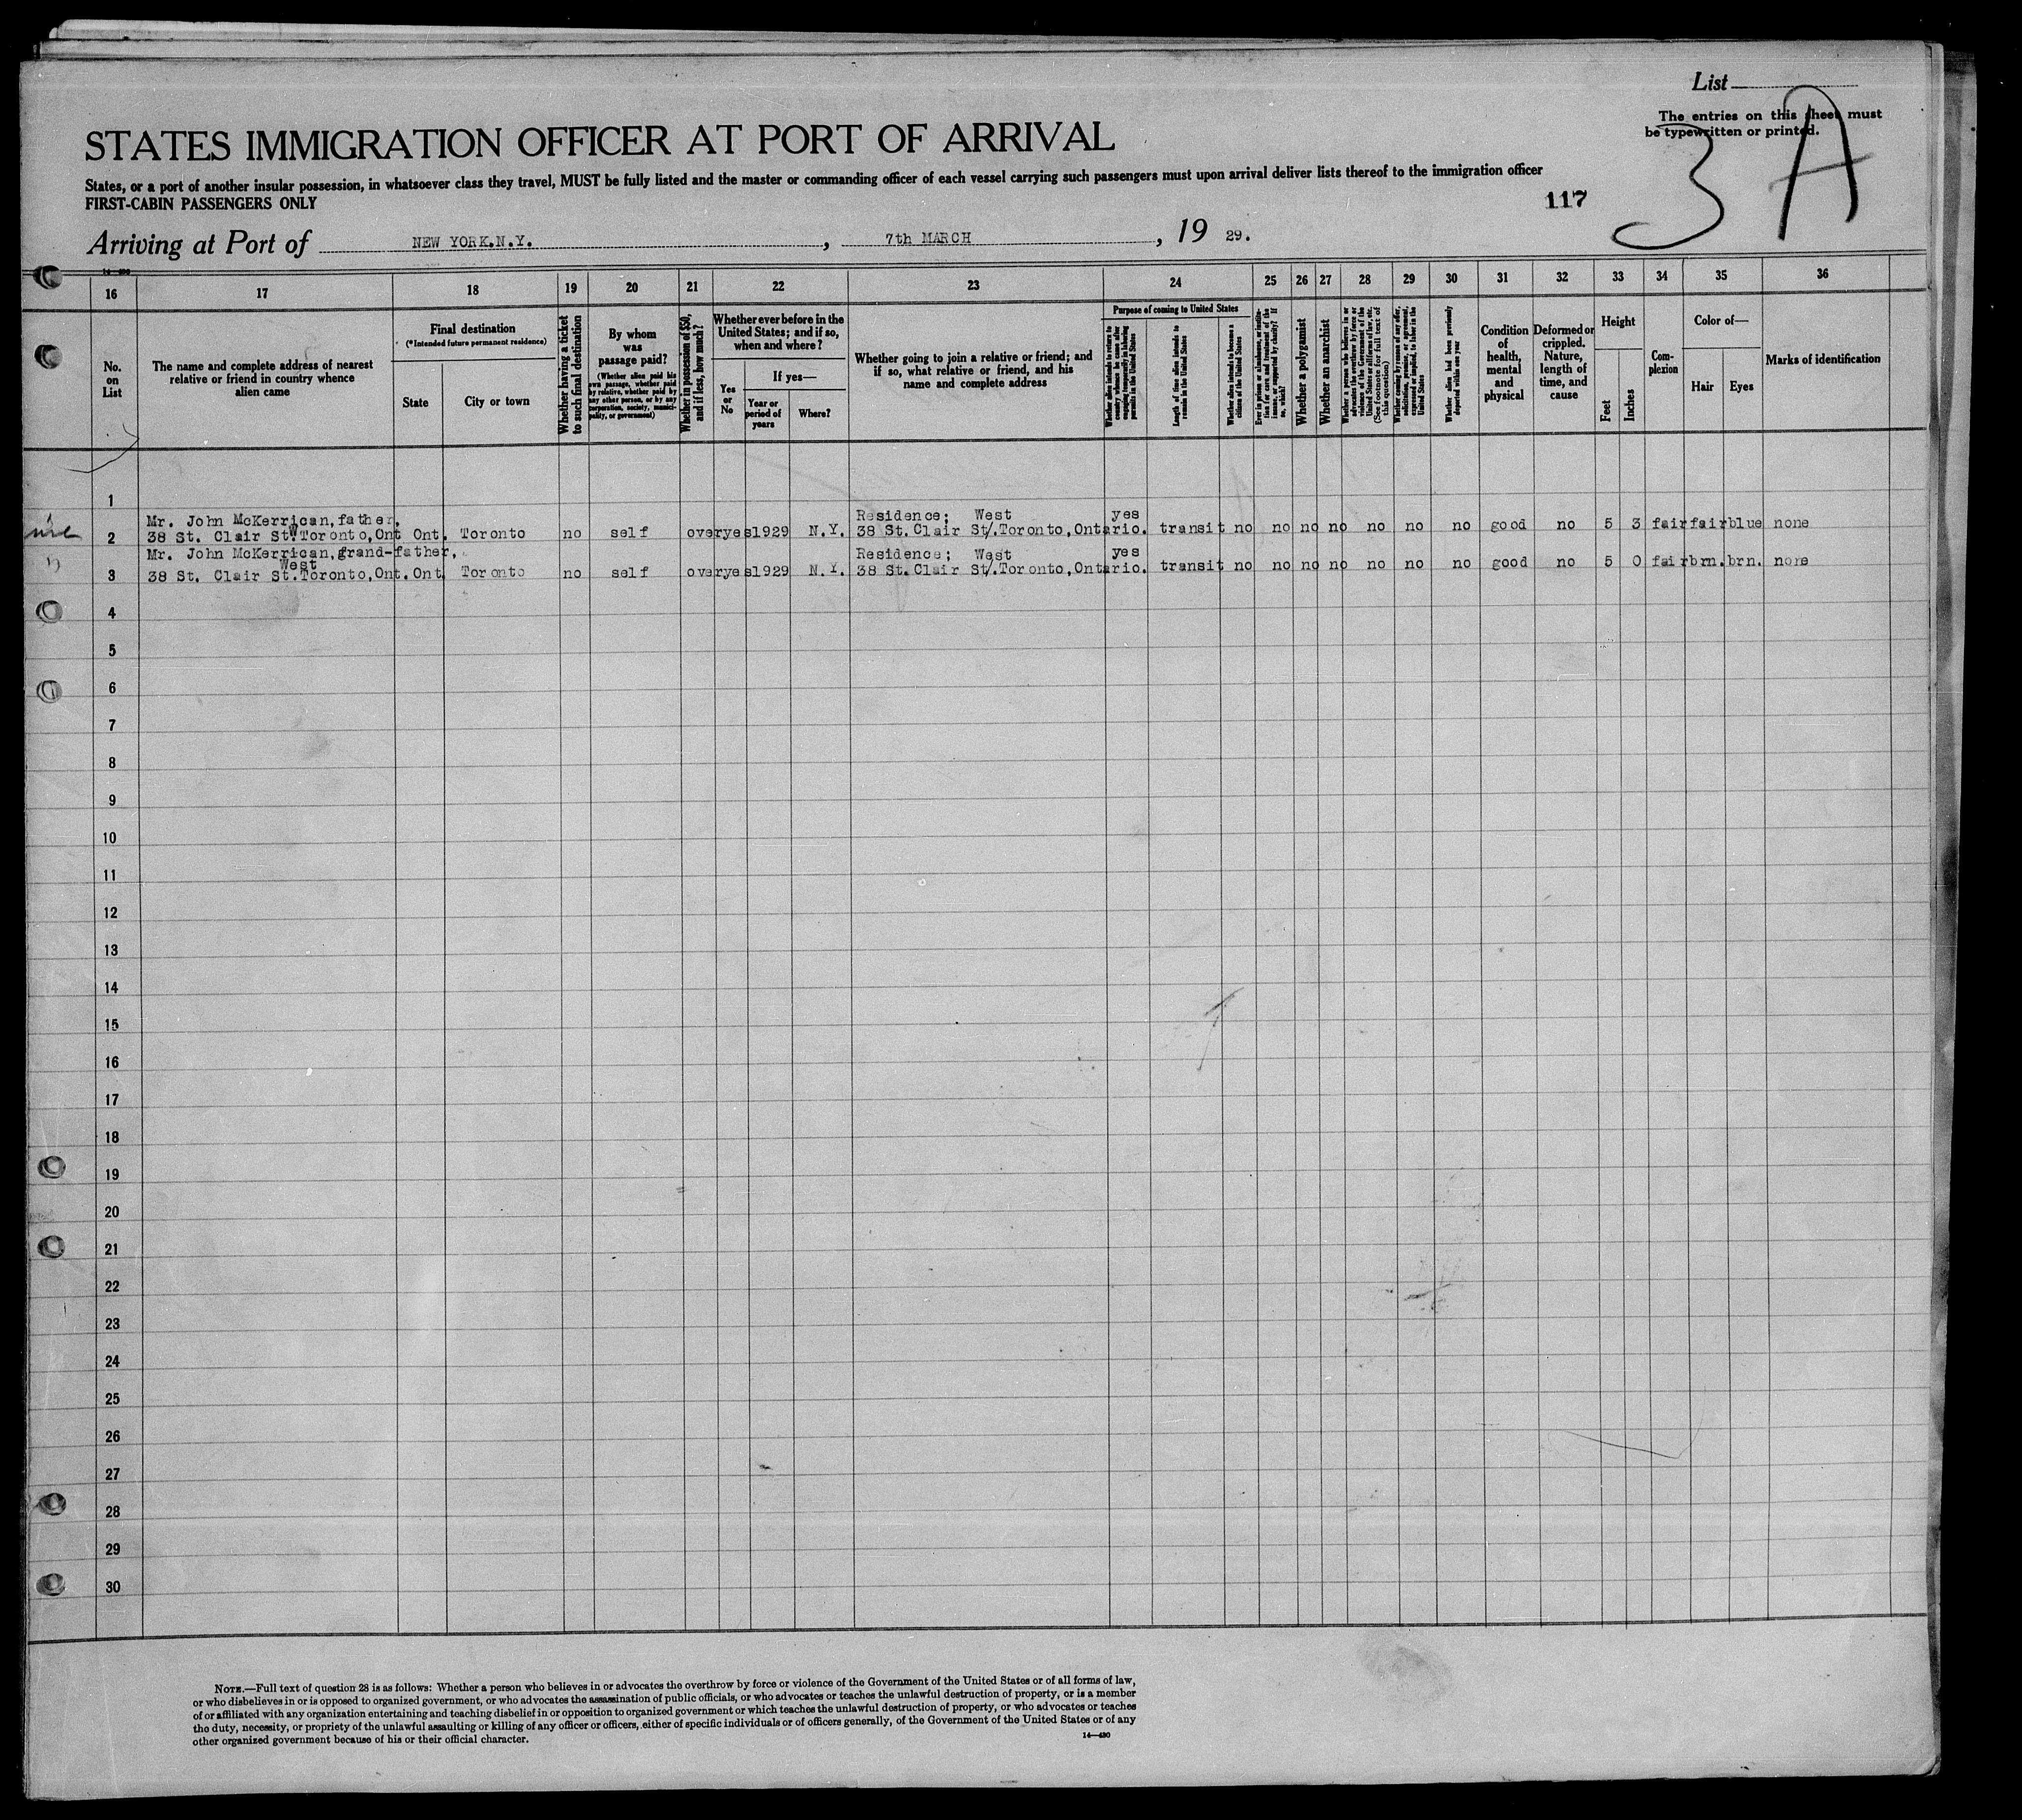 List
The entries on this sheet must
be typewritten or printed.
3 A
STATES IMMIGRATION OFFICER AT PORT OF ARRIVAL
States, or a port of another insular possession, in whatsoever class they travel, MUST be fully listed and the master or commanding officer of each vessel carrying such passengers must upon arrival deliver lists thereof to the immigration officer
FIRST-CABIN PASSENGERS ONLY
117
Arriving at Port of NEW YORK.N.Y. , 7th MARCH , 19 29.
14-430
16 17 18 19 20 21 22 23 24 25 26 27 28 29 30 31 32 33 34 35 36
No. on List
The name and complete address of nearest relative or friend in country whence alien came
Final destination
(*Intended future permanent residence)
State
City or town
Whether having a ticket to such final destination
By whom was passage paid?
(Whether alien paid his own passage, whether paid by relative, whether paid by any other person, or by any corporation, society, municipality, or government)
Whether in possession of $50, and if less, how much?
Whether ever before in the United States; and if so, when and where?
Yes or No
If yes—
Year or period of years
Where?
Whether going to join a relative or friend; and if so, what relative or friend, and his name and complete address
Purpose of coming to United States
Whether alien intends to return to country whence he came after engaging temporarily in laboring pursuits in the United States
Length of time alien intends to remain in the United States
Whether alien intends to become a citizen of the United States
Ever in prison or almshouse, or institution for care and treatment of the insane, or supported by charity? If so, which?
Whether a polygamist
Whether an anarchist
Whether a person who believes in or advocates the overthrow by force or violence of the Government of the United States or all forms of law, etc. (See footnote for full text of this question)
Whether coming by reason of any offer, solicitation, promise, or agreement, expressed or implied, to labor in the United States
Whether alien had been previously deported within one year
Condition of health, mental and physical
Deformed or crippled. Nature, length of time, and cause
Height
Feet
Inches
Com-plexion
Color of—
Hair
Eyes
Marks of identification
1
Mr. John McKerrican,father, Residence; West yes
2 38 St. Clair St.W Toronto,Ont Ont. Toronto no self over yes 1929 N.Y. 38 St. Clair St/.Toronto,Ontario. transit no no no no no no no good no 5 3 fair fair blue none
Mr. John McKerrican,grand-father, Residence; West yes
West
3 38 St. Clair St.Toronto,Ont. Ont. Toronto no self over yes 1929 N.Y. 38 St.Clair St/.Toronto,Ontario. transit no no no no no no no good no 5 0 fair brn. brn. none
4
5
6
7
8
9
10
11
12
13
14
15
16
17
18
19
20
21
22
23
24
25
26
27
28
29
30
NOTE.—Full text of question 28 is as follows: Whether a person who believes in or advocates the overthrow by force or violence of the Government of the United States or of all forms of law,
or who disbelieves in or is opposed to organized government, or who advocates the assassination of public officials, or who advocates or teaches the unlawful destruction of property, or is a member
of or affiliated with any organization entertaining and teaching disbelief in or opposition to organized government or which teaches the unlawful destruction of property, or who advocates or teaches
the duty, necessity, or propriety of the unlawful assaulting or killing of any officer or officers, either of specific individuals or of officers generally, of the Government of the United States or of any
other organized government because of his or their official character.
14—430